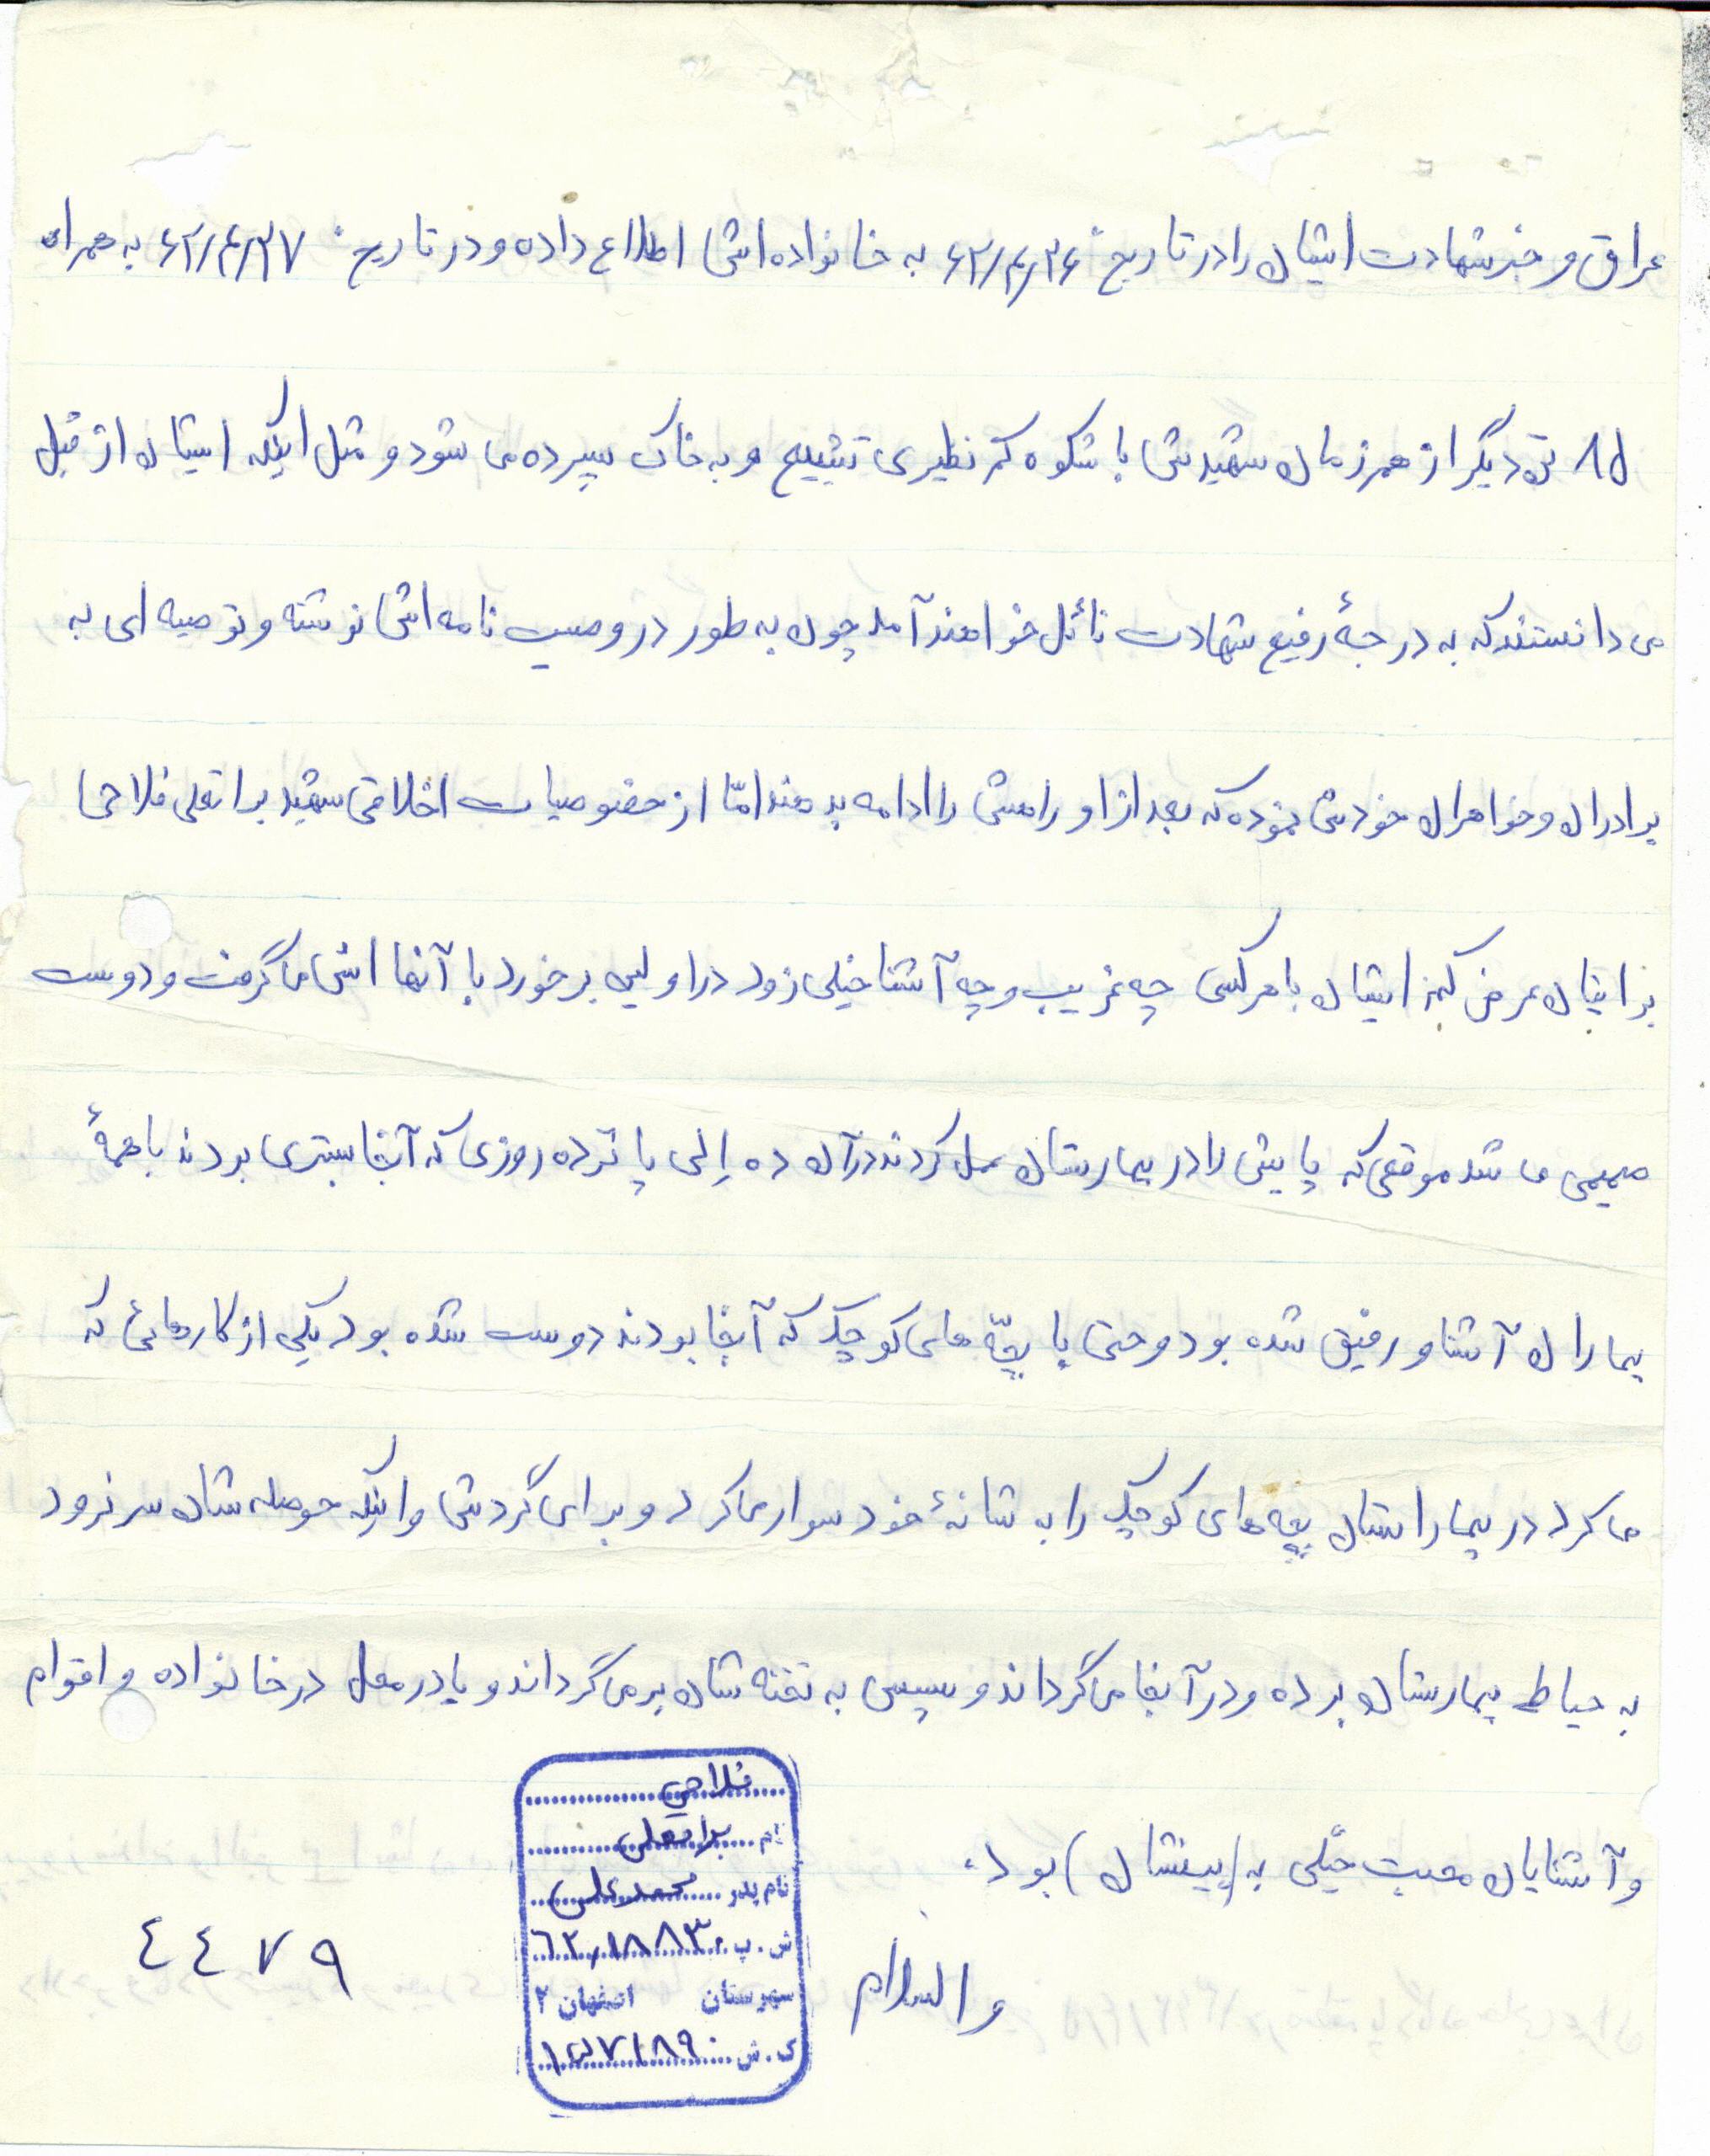 عراق و خبر شهادت ایشان را در تاریخ ۶۲/۴/۲۶ به خانواده اش اطلاع داده و در تاریخ ۶۲/۴/۲۷ به همراه
تن دیگر از همرزمان شهیدش با شکوه کم نظیری تشییع و به خاک سپرده می شود و مثل اینکه ایشان از قبل
می دانستند که به درجهٔ رفیع شهادت نائل خواهند آمد چون به طور در وصیت نامه اش نوشته و توصیه ای به
برادران و خواهران خودش نموده که بعد از او راهش را ادامه بدهند امّا از خصوصیات اخلاقی شهید براتعلی فلاحی
برایتان عرض کنم ایشان با هر کسی چه غریب و چه آشنا خیلی زود در اولین برخورد با آنها انس می گرفت و دوست
صمیمی می شد موقعی که پایش را در بیمارستان عمل کردند در آن ده إلی پانزده روزی که آنجا بستری بودند با همهٔ
بیماران آشنا و رفیق شده بود و حتی با بچّه های کوچک که آنجا بودند دوست شده بود یکی از کارهائی که
می کرد در بیمارستان بچه های کوچک را به شانهٔ خود سوار می کرد و برای گردش و اینکه حوصله شان سر نرود
به حیاط بیمارستان برده و در آنجا می گرداند و سپس به تخته شان بر می گرداند و یا در محل در خانواده و اقوام
و آشنایان محبت خیّلی به (بینشان) بود.
والسلام
فلاحی
نام براتعلی
نام پدر محمدعلی
ش.پ ٦٢/١٨٨٣٠
شهرستان اصفهان ٢
ک.ش ١٥٧١٨٩٠
٤٤٧٩